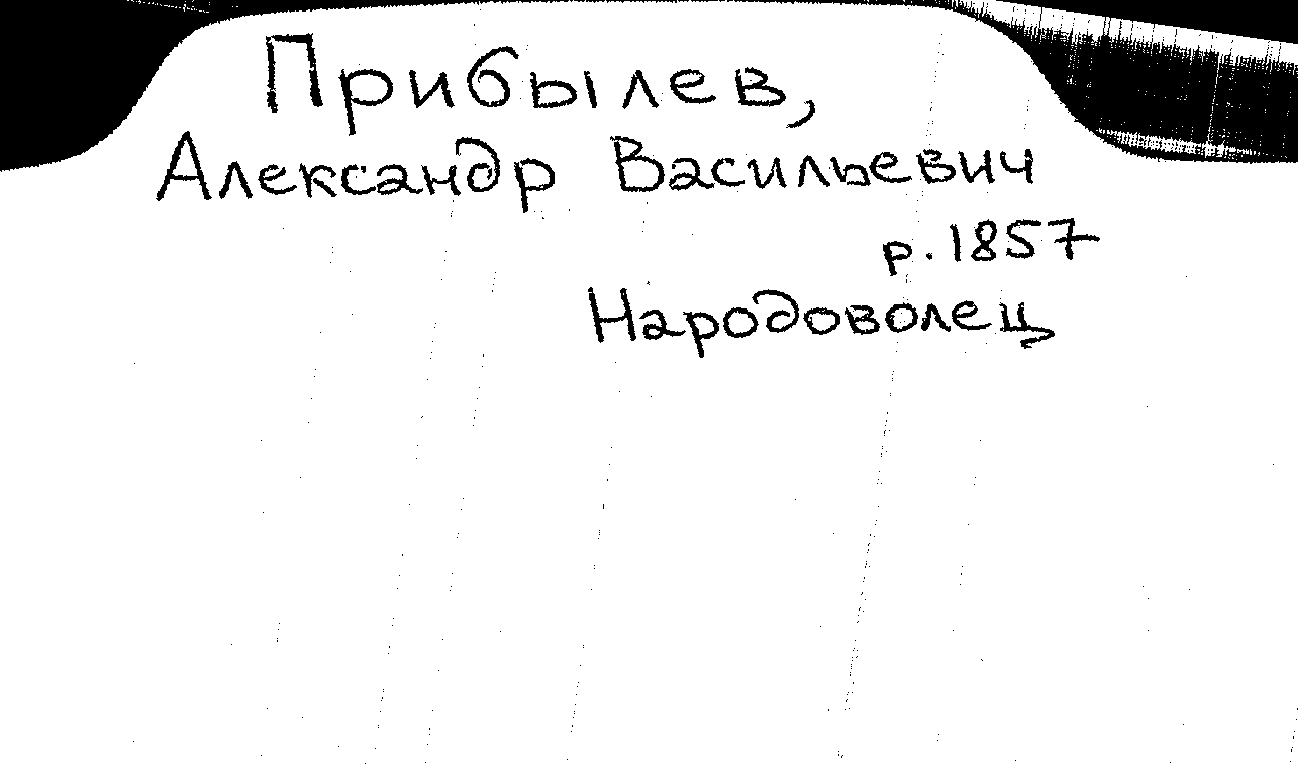 Прибылев,
Александр Васильевич
р. 1857
Народоволец